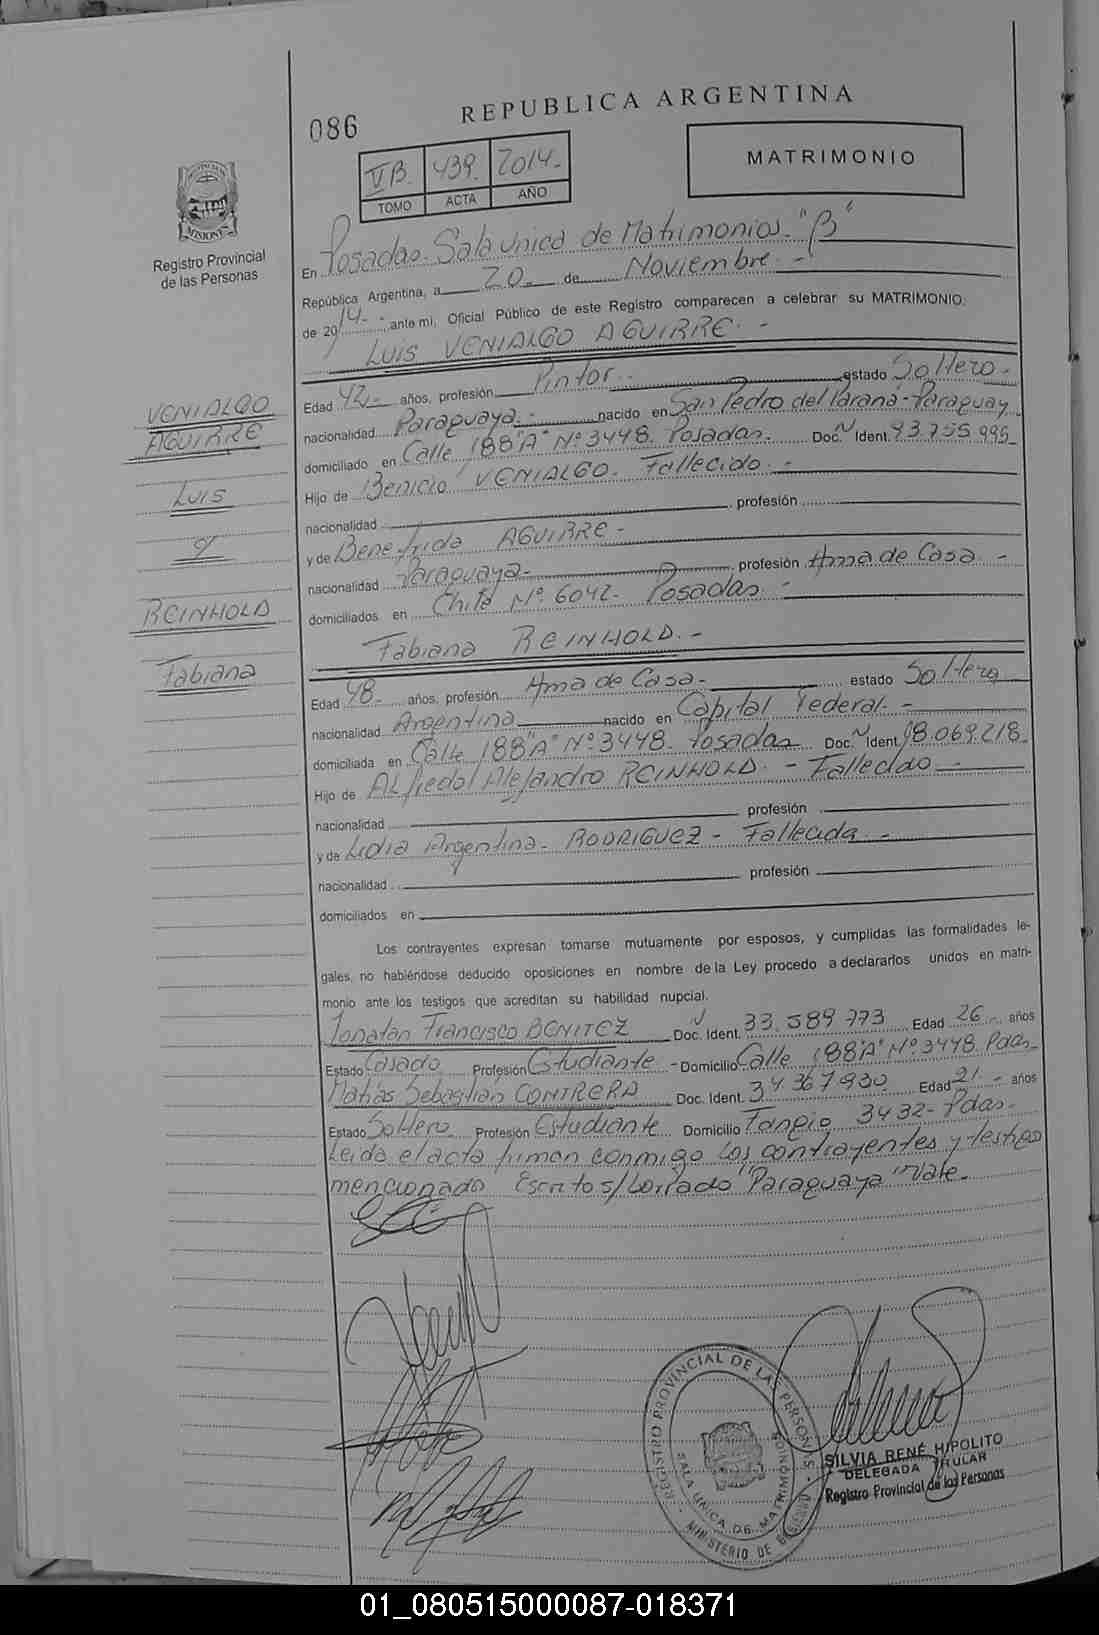 REPUBLICA ARGENTINA
086
MATRIMONIO
VB. 439. 2014.-
TOMO ACTA AÑO
PROVINCIA DE MISIONES
Registro Provincial
de las Personas
En Posadas. Sala única de Matrimonios. "B"
República Argentina, a 20.- de Noviembre.-
de 2014.- , ante mí, Oficial Público de este Registro comparecen a celebrar su MATRIMONIO.
Luis VENIALGO AGUIRRE.-
Edad 42.- años, profesión Pintor.- estado Soltero.-
nacionalidad Paraguaya.- nacido en San Pedro del Paraná-Paraguay
domiciliado en Calle 188"A" Nº 3448. Posadas. Doc. N Ident. 93.755.995
Hijo de Benicio VENIALGO. Fallecido.-
nacionalidad profesión
y de Benefrida AGUIRRE.-
nacionalidad Paraguaya.- profesión Ama de Casa.-
domiciliados en Chile Nº 6042. Posadas.-
Fabiana REINHOLD.-
Edad 48.- años, profesión Ama de Casa.- estado Soltera
nacionalidad Argentina nacido en Capital Federal.-
domiciliada en Calle 188"A" Nº 3448. Posadas Doc. N Ident. 18.069.218
Hijo de Alfredo Alejandro REINHOLD.- Fallecido.-
nacionalidad profesión
y de Lidia Argentina. RODRIGUEZ- Fallecida.-
nacionalidad profesión
domiciliados en
Los contrayentes expresan tomarse mutuamente por esposos, y cumplidas las formalidades le-
gales, no habiéndose deducido oposiciones en nombre de la Ley procedo a declararlos unidos en matri-
monio ante los testigos que acreditan su habilidad nupcial.
Jonatan Francisco BENITEZ Doc. N Ident. 33.589.773 Edad 26.- años
Estado Casado Profesión Estudiante - Domicilio Calle 188"A" Nº 3448. Pdas.
Matías Sebastián CONTRERA Doc. Ident. 34.367.930 Edad 21.- años
Estado Soltero. Profesión Estudiante Domicilio Fangio 3432- Pdas.
Leida el acta firman conmigo los contrayentes y testigo
mencionado Escrito s/borrado "Paraguaya" Vale.
VENIALGO
AGUIRRE
Luis
c/
REINHOLD
Fabiana
REGISTRO PROVINCIAL DE LAS PERSONAS - MINISTERIO DE GOBIERNO
SALA UNICA DE MATRIMONIOS
SILVIA RENÉ HIPOLITO
DELEGADA TITULAR
Registro Provincial de las Personas
01_080515000087-018371